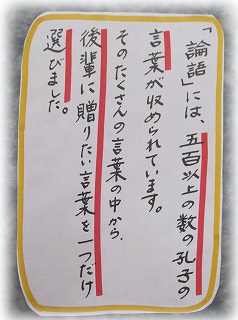 「論語」には、五百以上の数の孔子の
言葉が収められています。
そのたくさんの言葉の中から、
後輩に贈りたい言葉を一つだけ
選びました。